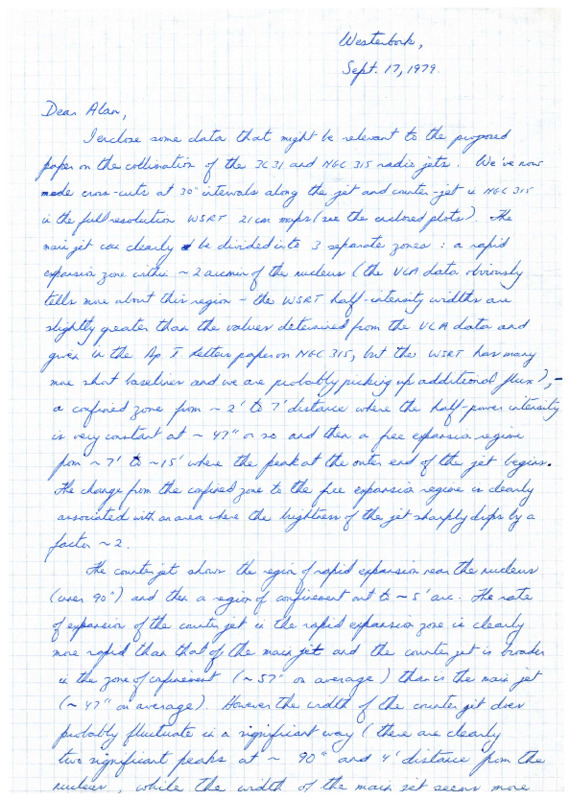 Westerbork,
Sept. 17, 1979.
Dear Alan,
I enclose some data that might be relevant to the proposed
paper on the collimation of the 3C31 and NGC 315 radio jets. We've now
made cross-cuts at 30" intervals along the jet and counter-jet in NGC 315
in the full resolution WSRT 21cm maps (see the enclosed plots). The
main jet can clearly be divided into 3 separate zones: a rapid
expansion zone within ~2 arcmin of the nucleus (the VLA data obviously
tells more about this region - the WSRT half-intensity widths are
slightly greater than the values determined from the VLA data and
given in the Ap J Letters paper on NGC 315, but the WSRT has many
more short baselines and we are probably picking up additional flux), -
a confined zone from ~2' to 7' distance where the half-power intensity
is very constant at ~47" or so and then a free expansion regime
from ~7' to ~15' where the peak at the outer end of the jet begins.
The change from the confined zone to the free expansion regime is clearly
associated with an area where the brightness of the jet sharply dips by a
factor ~2.
The counterjet shows the region of rapid expansion near the nucleus
(over 90") and then a region of confinement out to ~5' arc. The rate
of expansion of the counter jet in the rapid expansion zone is clearly
more rapid than that of the main jet and the counter jet is broader
in the zone of confinement (~57" on average) than is the main jet
(~47" on average). However the width of the counter jet does
probably fluctuate in a significant way (there are clearly
two significant peaks at ~90" and 4' distance from the
nucleus, while the width of the main jet seems more